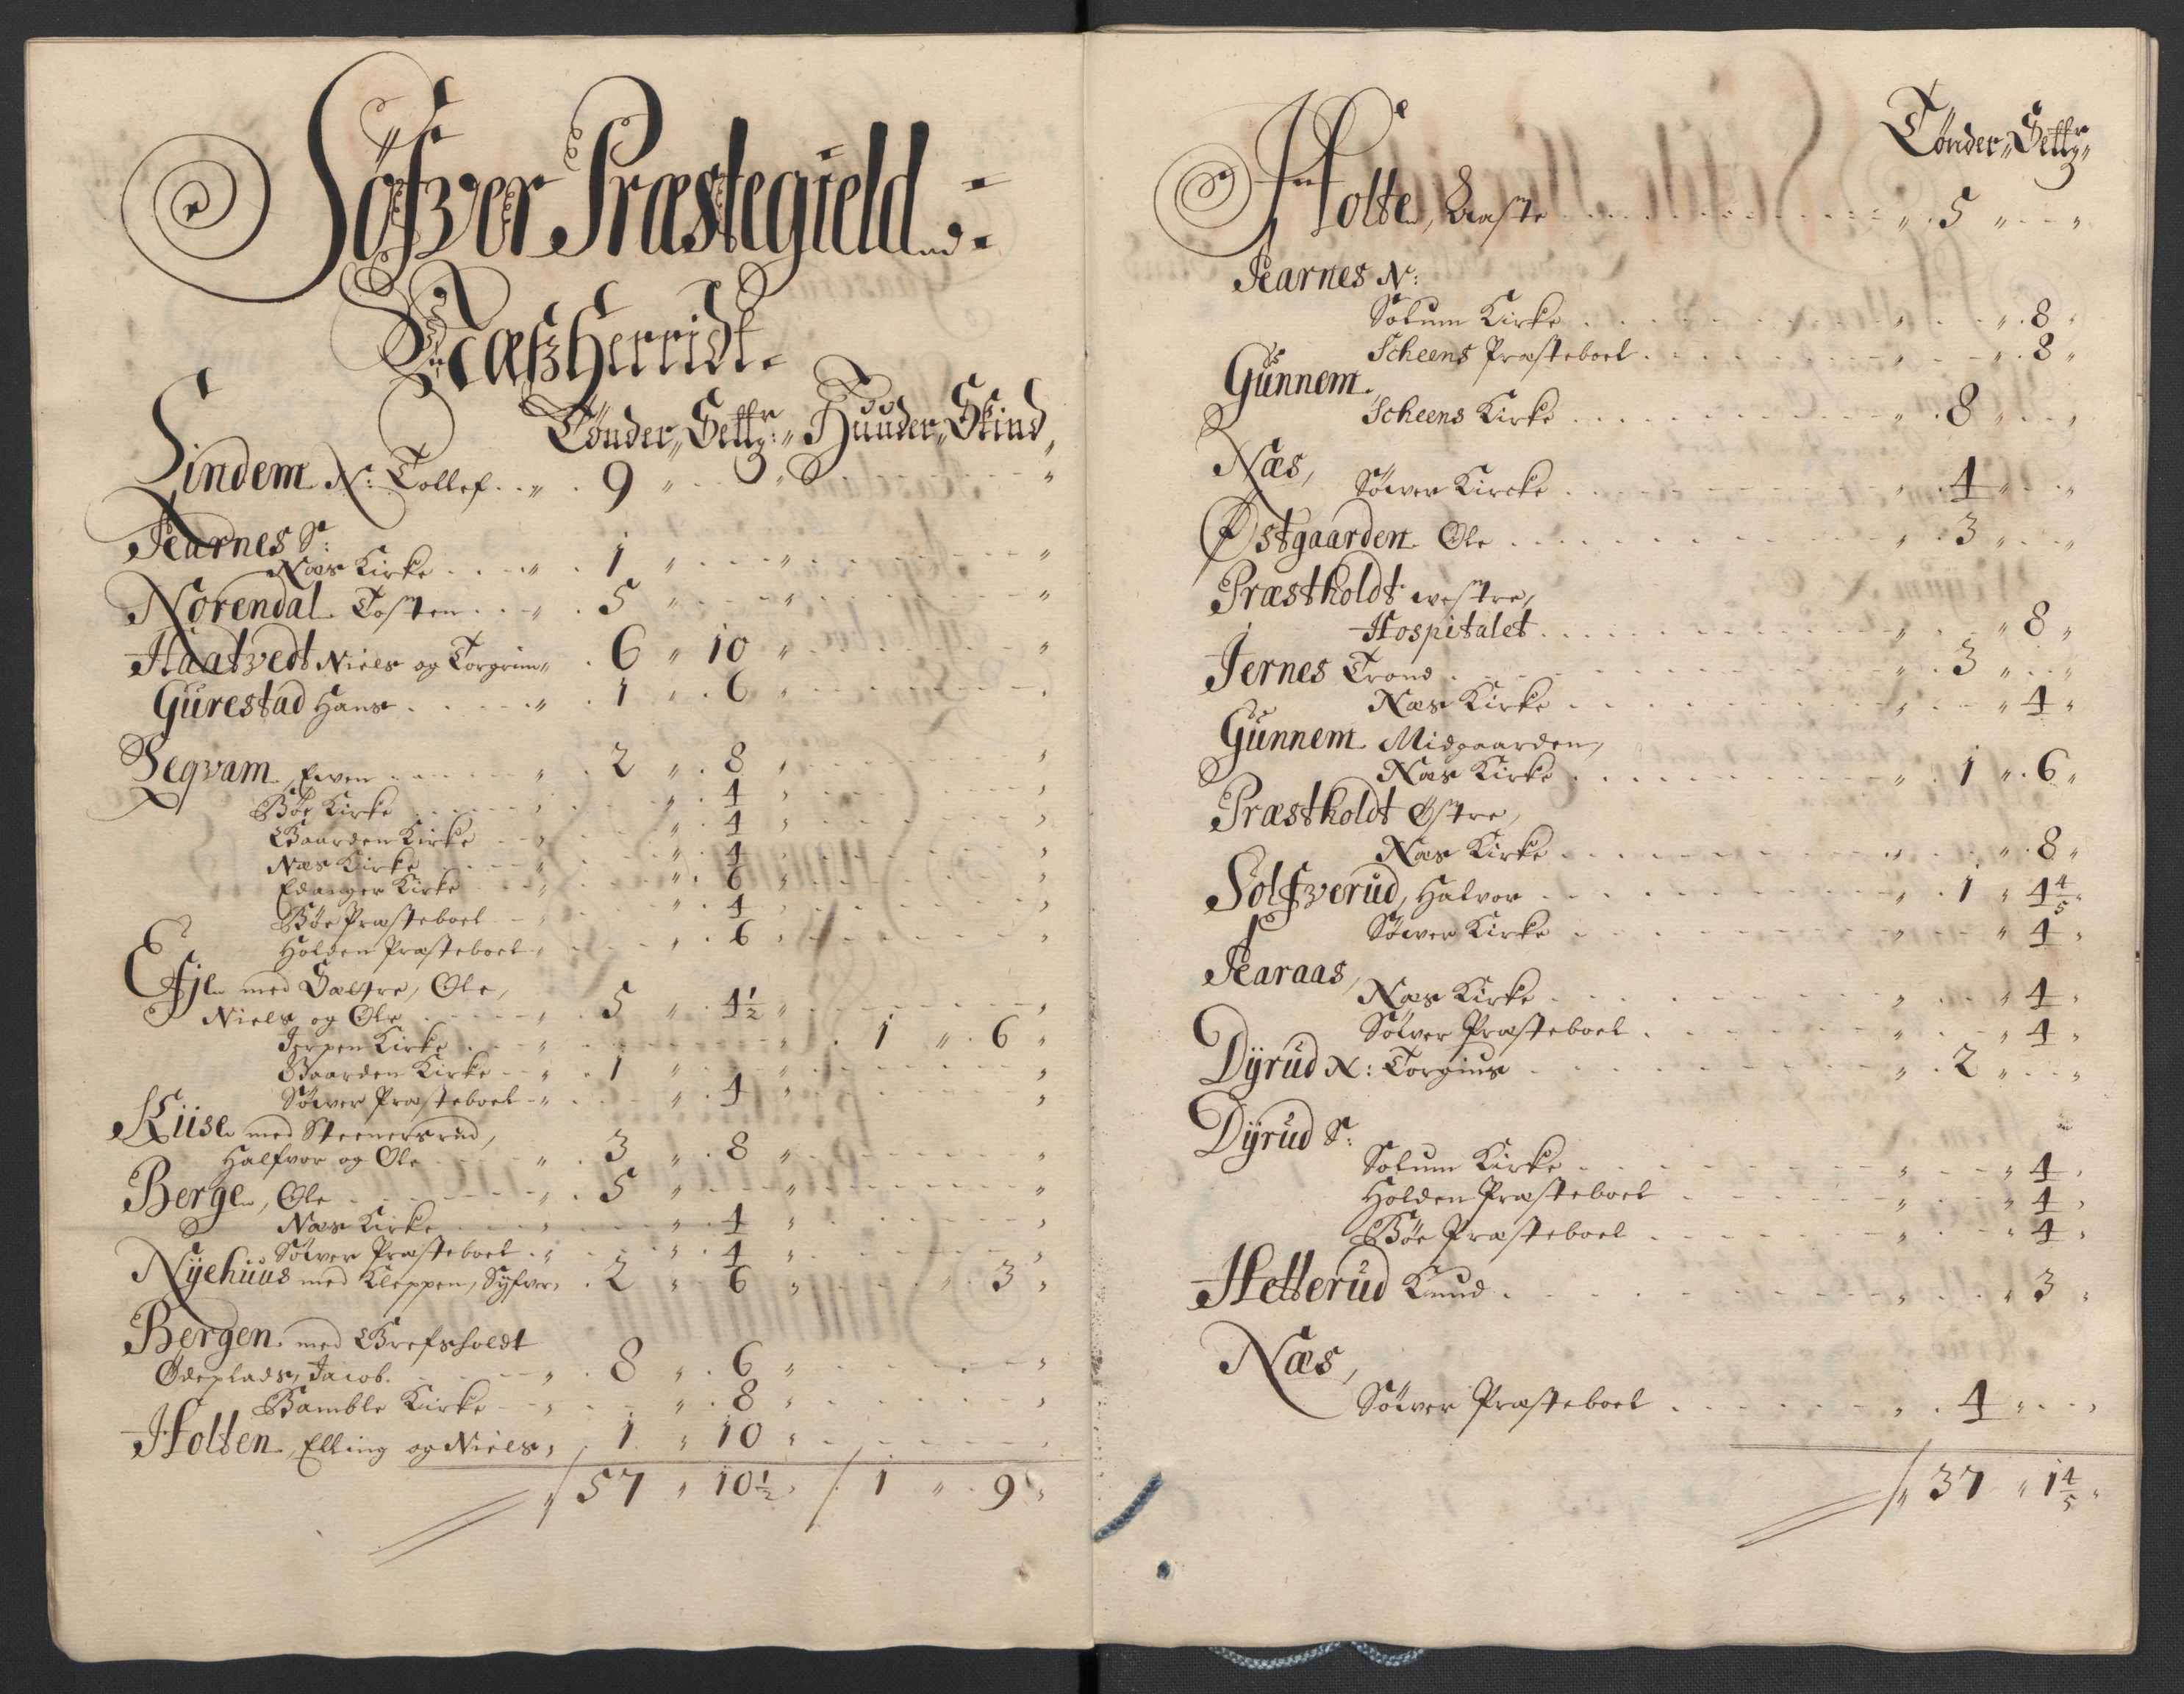 Söfver Præstegield
Næß Herridt.
Tønder, Settgr: Huuder, Skind
Lindem N: Tollef 9
Aarnes S:
Næs Kirke 1
Nörendal Tosten 5
Haatvedt Niels og Torgrim 6 10
Gurestad Hans 1 6
Seqvam, Even 2 8
Böe Kirke 4
Gaarden Kirke 4
Næs Kirke 4
Edanger Kirke 6
Böe Præsteboel 4
Holden Præsteboel 6
Efje med Sættre, Ole,
Niels og Ole 5 4½
Jerpen Kirke 1 6
Gaarden Kirke 1
Söwer Præsteboel 4
Kiise med Steenersrud,
Halfvor og Ole 3 8
Berge, Ole 5
Næs Kirke 4
Söwer Præsteboel 4
Nÿehuus med Kleppen, Sÿfver 2 6 3
Bergen med Grefsholdt
Ødeplads, Jacob. 8 6
Bamble Kirke 8
Holten, Elling og Niels 1 10
57 10½ 1 9
Tønder, Settgr
Holte, Aaste 5
Aarnes N:
Solum Kirke 8
Scheens Præsteboel 8
Gunnem
Scheens Kirke 8
Næs,
Söwer Kircke 4
Østgaarden Ole 3
Præstholdt westre,
Hospitalet 8
Jernes Trond 3
Næs Kirke 4
Gunnem Midgaarden,
Næs Kirke 1 6
Præstholdt Østre,
Næs Kirke 8
Solfverud, Halvor 1 4 4/5
Söwer Kirke 4
Aaraas,
Næs Kirke 4
Söwer Præsteboel 4
Dÿrud N: Torgius 2
Dÿrud S:
Solum Kirke 4
Holden Præsteboel 4
Böe Præsteboel 4
Hetterud Knud 3
Næs,
Söwer Præsteboel 4
37 1 4/5